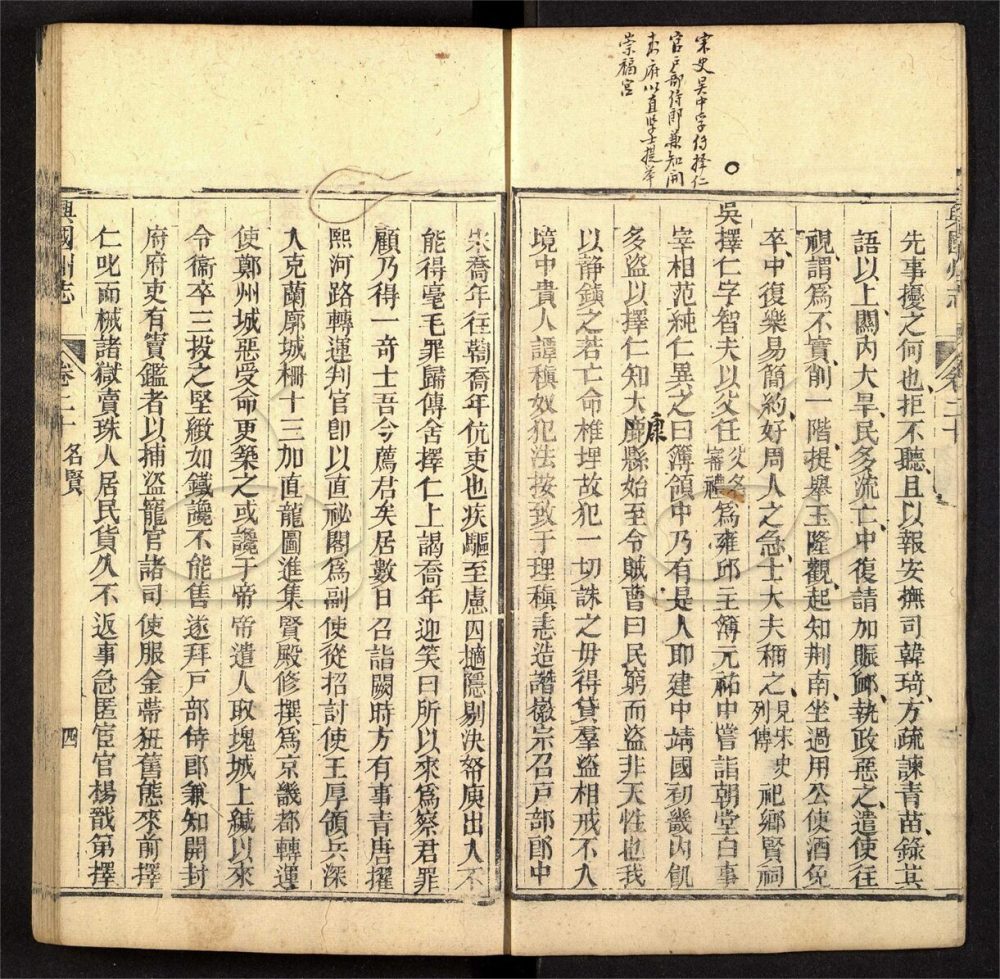 宋史吳中字仔擇仁
官戶部侍郎兼知開
封府以直學士提举
崇福宮
先事擾之何也拒不聽且以報安撫司韓琦方疏諫青苗錄其
語以上關內大旱民多流亡中復請加賑卹執政惡之遣使往
視謂爲不實削一階提舉玉隆觀起知荆南坐過用公使酒免
卒中復樂易簡約好周人之急士大夫稱之見宋史列傳祀鄉賢祠
吳擇仁字智夫以父任父名審禮爲雍邱主簿元祐中嘗詣朝堂白事
宰相范純仁異之曰簿領中乃有是人耶建中靖國初畿內飢
多盜以擇仁知大鹿縣始至令賊曹曰民窮而盜非天性也我
康
以静鎮之若亡命椎埋故犯一切誅之毋得貸羣盜相戒不入
境中貴人譚稹奴犯法按致于理稹恚造譖徽宗召戶部郎中
宋喬年往鞫喬年伉吏也疾驅至慮囚擿隱剔決帑庾出入不
能得毫毛罪歸傳舍擇仁上謁喬年迎笑曰所以來爲察君罪
顧乃得一奇士吾今薦君矣居數日召詣闕時方有事青唐擢
熙河路轉運判官即以直祕閣爲副使從招討使王厚領兵深
入克蘭廓城柵十三加直龍圖進集賢殿修撰爲京畿都轉運
使鄭州城惡受命更築之或讒于帝帝遣人取塊城上緘以來
令衞卒三投之堅緻如鐵讒不能售遂拜戶部侍郎兼知開封
府府吏有賣鑑者以捕盜寵官諸司使服金帶狃舊態來前擇
仁叱而械諸獄賣珠人居民貨久不返事急匿宦官楊戩第擇
興國州志
卷二十
名賢
四